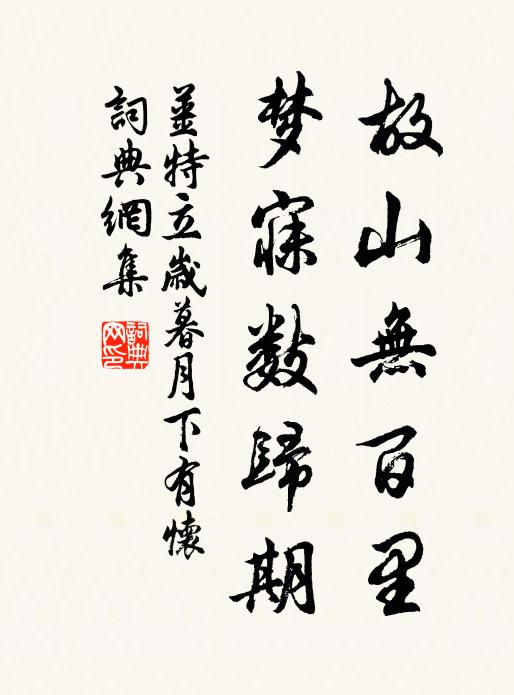 故山無百里
梦寐数歸期
姜特立歲暮月下有懷
詞典網集
詞典網印